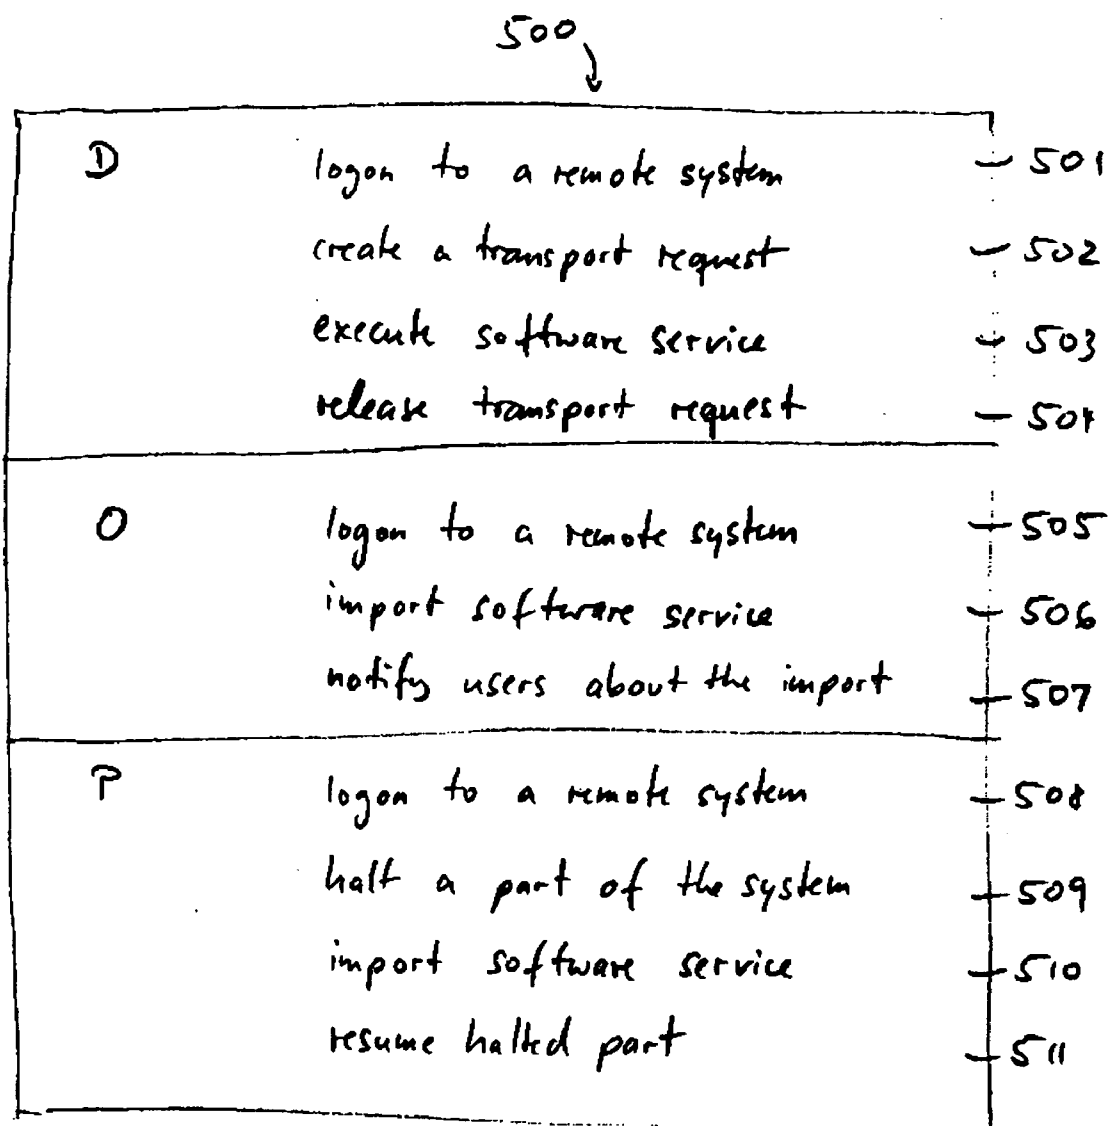 500
D logon to a remote system 501
create a transport request 502
execute software service 503
release transport request 504
O logon to a remote system 505
import software service 506
notify users about the import 507
P logon to a remote system 508
halt a part of the system 509
import software service 510
resume halted part 511